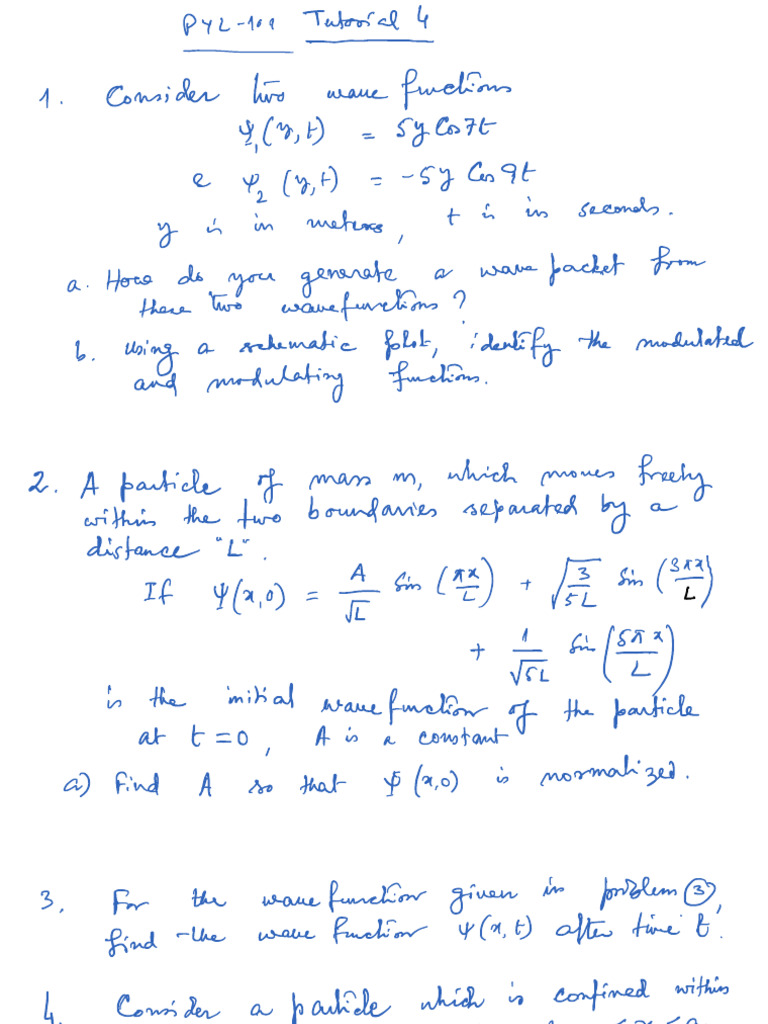 PYL-101 Tutorial 4
1. Consider two wave functions
Ψ₁(y,t) = 5y Cos7t
& Ψ₂(y,t) = -5y Cos 9t
y is in meters, t is in seconds.
a. How do you generate a wave packet from
these two wavefunctions?
b. Using a schematic plot, identify the modulated
and modulating functions.
2. A particle of mass m, which moves freely
within the two boundaries separated by a
distance "L".
If Ψ(x,0) = A/√L Sin (πx/L) + √(3/5L) Sin (3πx/L)
+ 1/√5L Sin (5πx/L)
is the initial wavefunction of the particle
at t=0, A is a constant
a) Find A so that Ψ(x,0) is normalized.
3. For the wavefunction given in problem ③,
find the wave function Ψ(x,t) after time t.
4. Consider a particle which is confined within